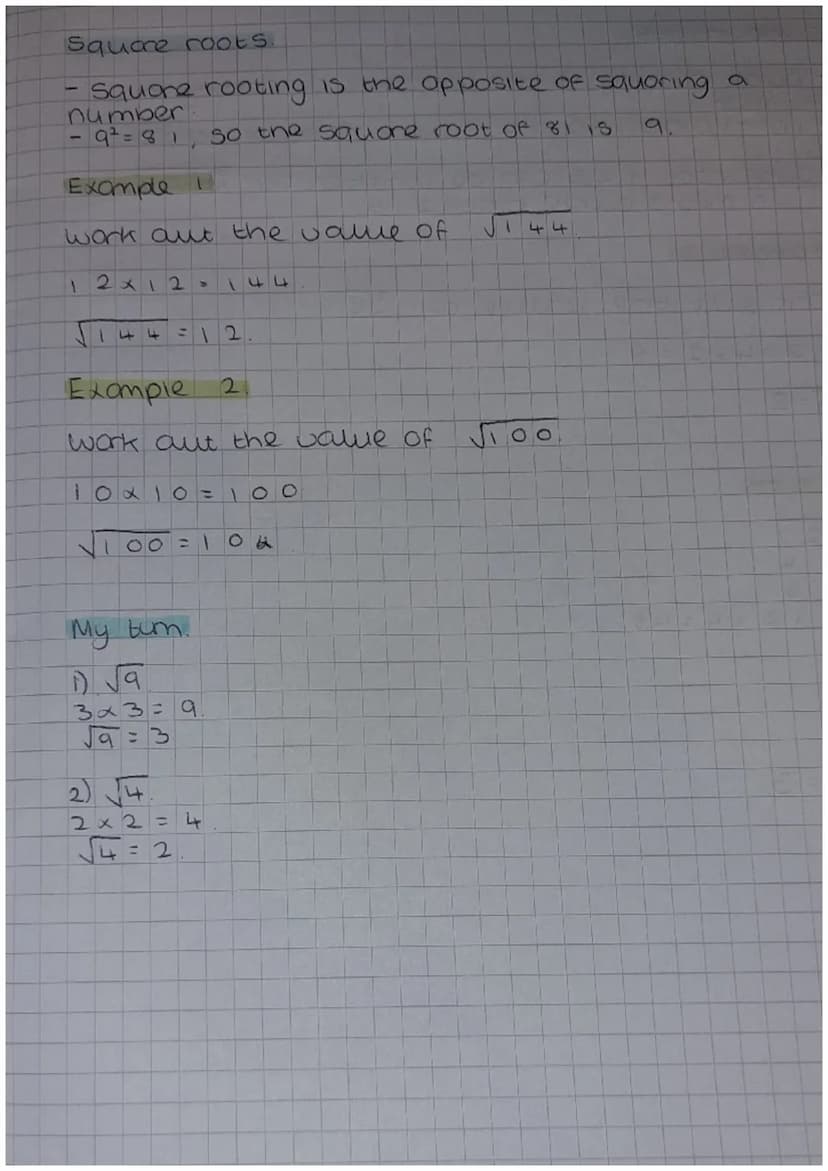 Square roots.
- Square rooting is the opposite of squaring a
number.
- 9² = 81, so the square root of 81 is 9.
Example 1
Work out the value of √144.
12 x 12 = 144.
√144 = 12.
Example 2.
Work out the value of √100.
10 x 10 = 100
√100 = 10
My turn.
1) √9
3 x 3 = 9.
√9 = 3
2) √4.
2 x 2 = 4.
√4 = 2.